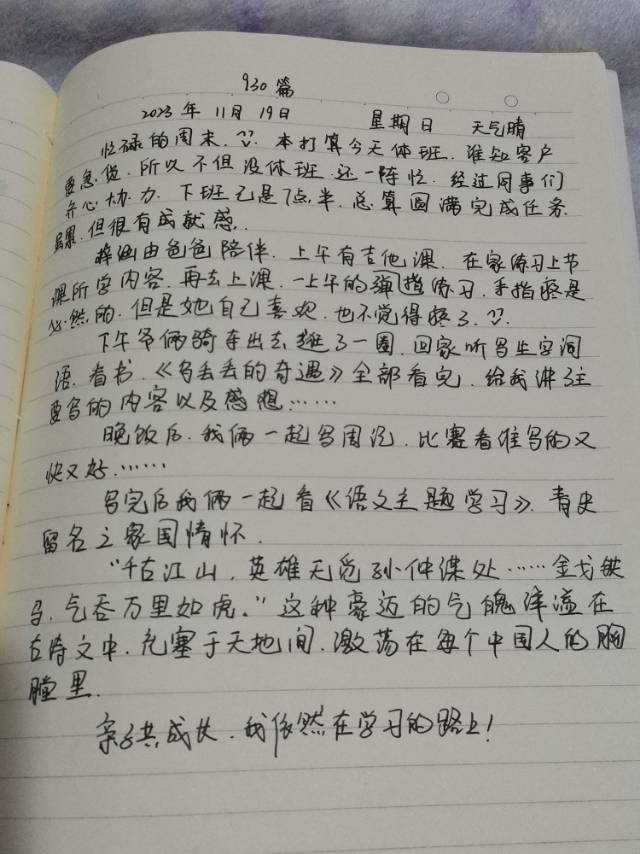 930篇
2023年11月19日 星期日 天气晴
忙碌的周末. 本打算今天休班. 谁知客户
要急货. 所以不但没休班. 还一阵忙. 经过同事们
齐心协力. 下班已是7点半. 总算圆满完成任务.
虽累, 但很有成就感.
由爸爸陪伴. 上午有吉他课. 在家练习上节
课所学内容. 再去上课. 一上午的弹指练习. 手指疼是
必然的. 但是她自己喜欢. 也不觉得疼了.
下午爷俩骑车出去逛了一圈. 回家听写生字词
语. 看书. 《乌丢丢的奇遇》全部看完. 给我讲了主
要写的内容以及感想……
晚饭后. 我俩一起写周记. 比赛看谁写的又
快又好. ……
写完后我俩一起看《语文主题学习》. 青史
留名之家国情怀.
“千古江山, 英雄无觅孙仲谋处……金戈铁
马, 气吞万里如虎.”这种豪迈的气魄洋溢在
古诗文中. 充塞于天地间. 激荡在每个中国人的胸
膛里.
亲子共成长. 我依然在学习的路上!